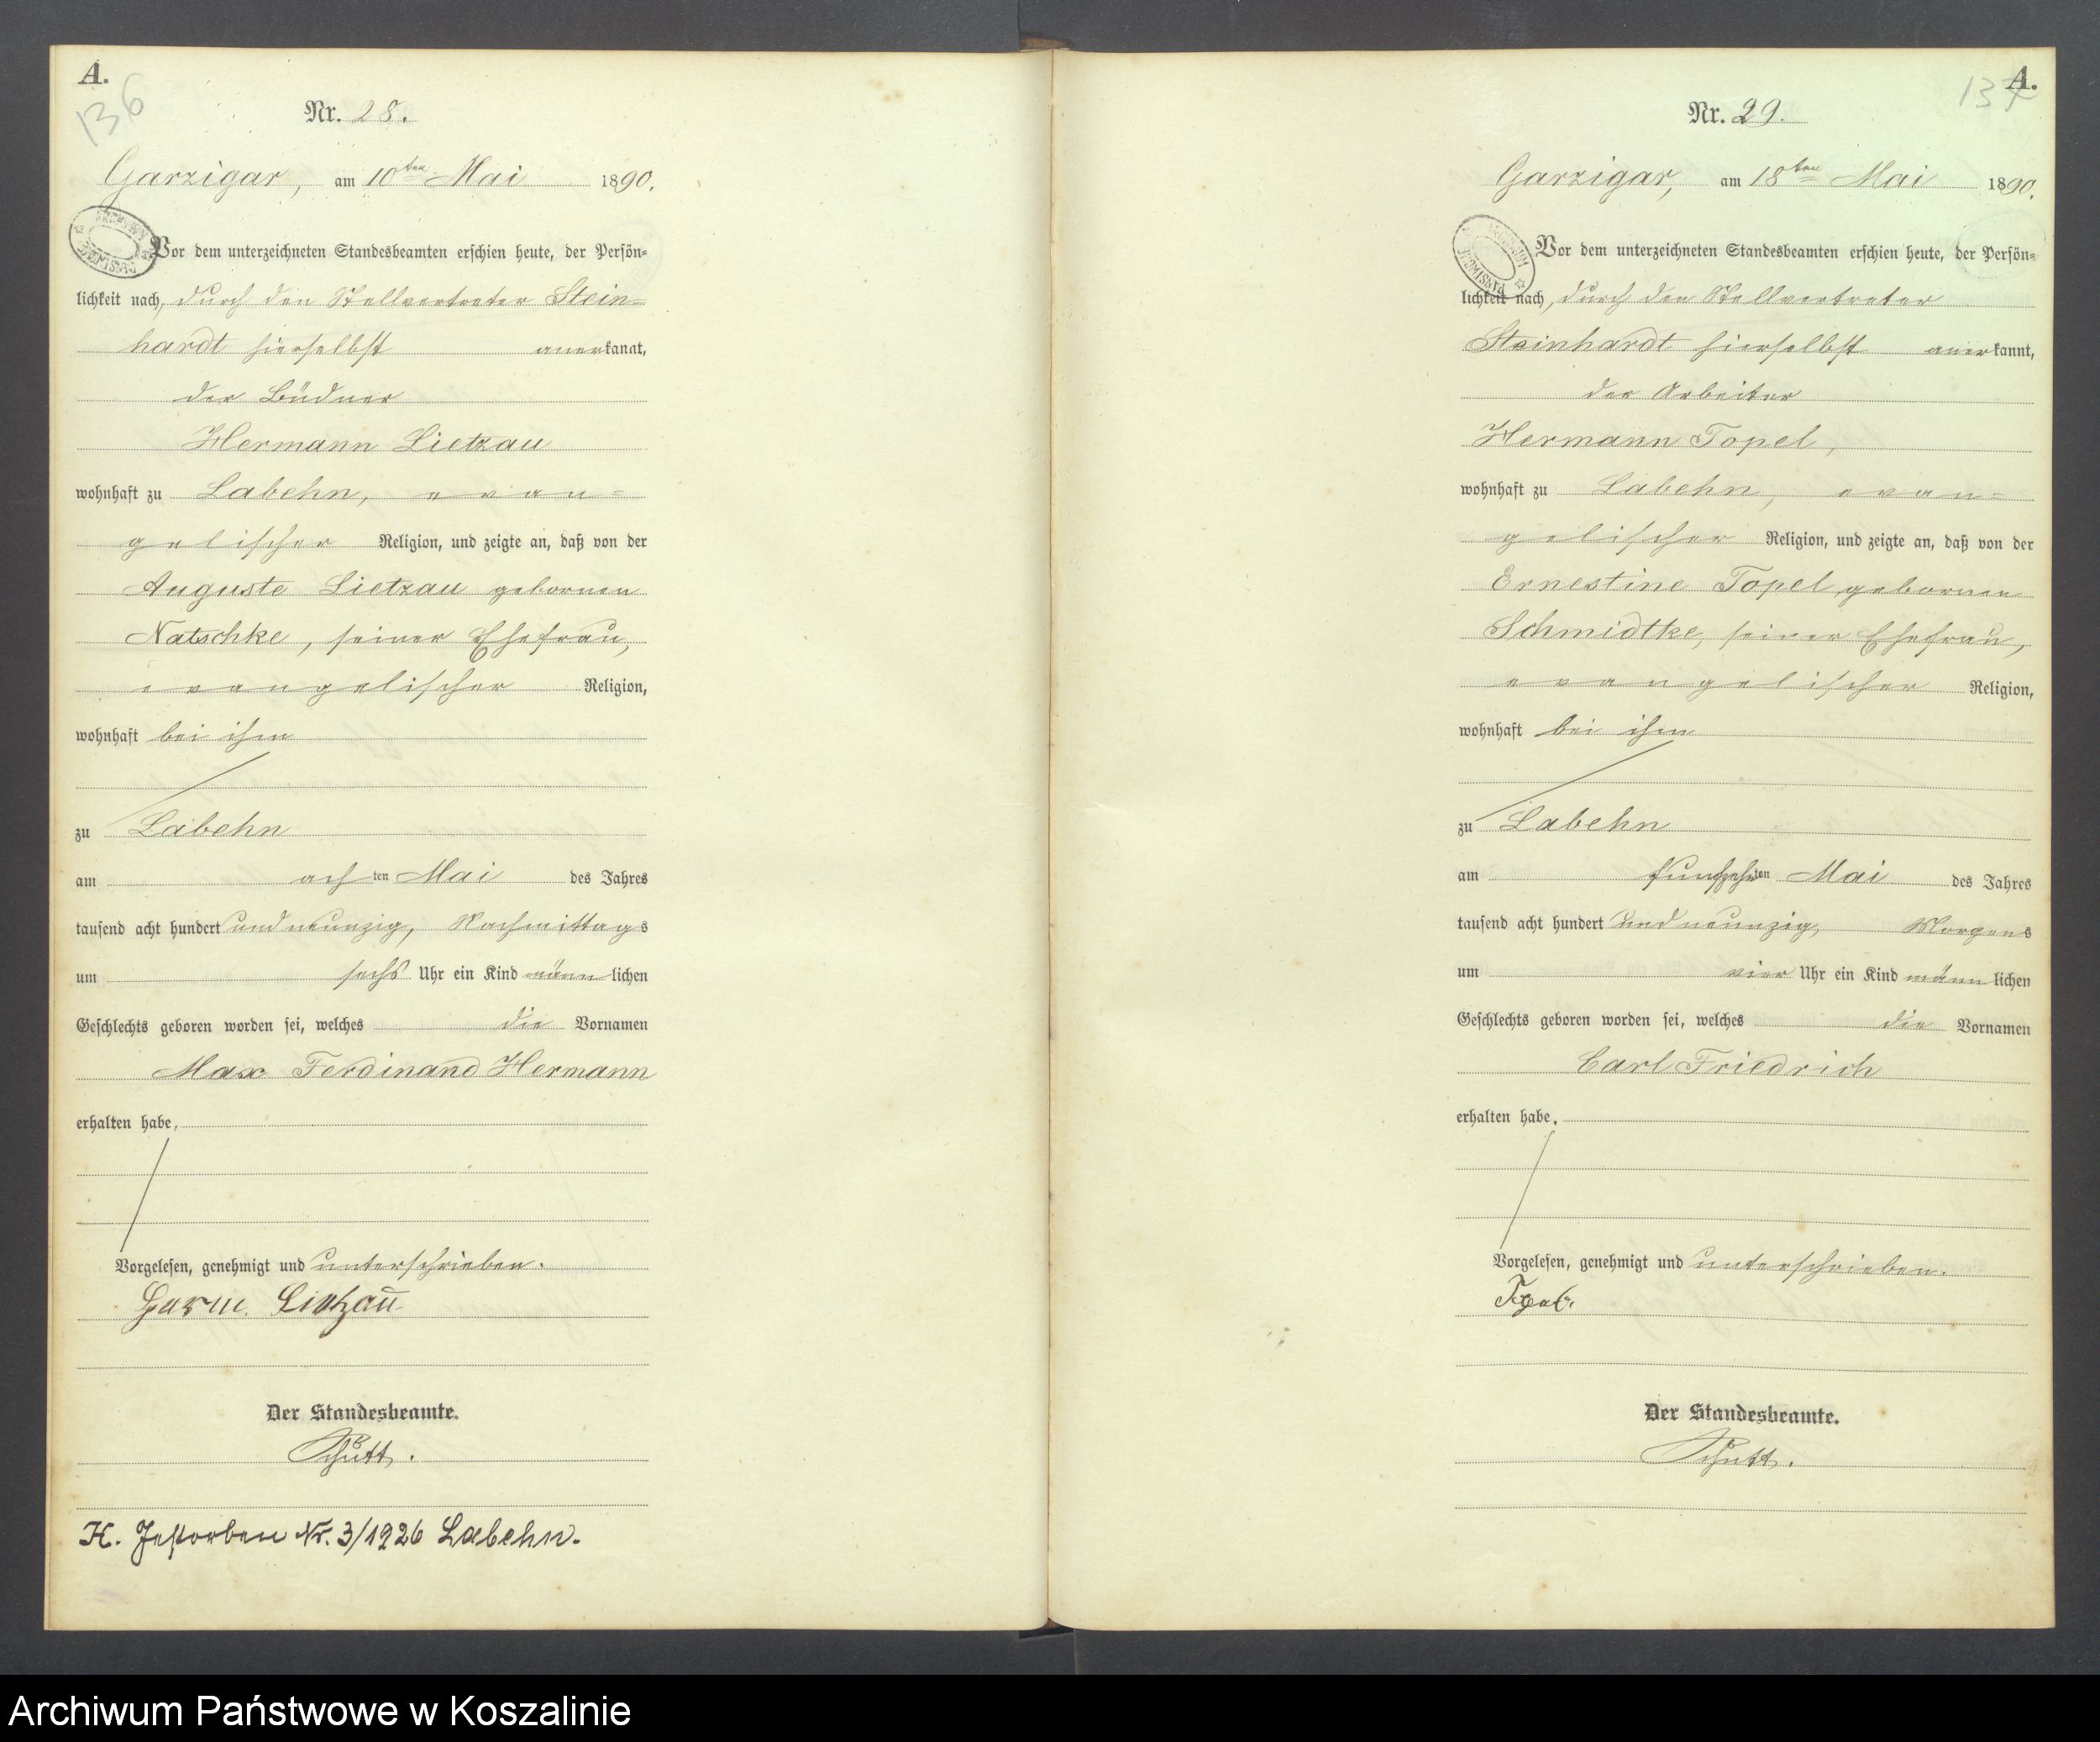 A.
136
Nr. 28.
Garzigar, am 10ten Mai 1890.
Vor dem unterzeichneten Standesbeamten erschien heute, der Persön=
lichkeit nach, durch den Stellvertreter Stein=
hardt hierselbst anerkannt,
der Büdner
Hermann Lietzau
wohnhaft zu Labehn, evan=
gelischer Religion, und zeigte an, daß von der
Auguste Lietzau gebornen
Natschke, seiner Ehefrau,
evangelischer Religion,
wohnhaft bei ihm
zu Labehn
am achten Mai des Jahres
tausend acht hundert und neunzig, Nachmittags
um sechs Uhr ein Kind männlichen
Geschlechts geboren worden sei, welches die Vornamen
Max Ferdinand Hermann
erhalten habe.
Vorgelesen, genehmigt und unterschrieben.
Herm. Lietzau
Der Standesbeamte.
Schütt.
H. Gestorben Nr. 3/1926 Labehn.
A.
137
Nr. 29.
Garzigar, am 18ten Mai 1890.
Vor dem unterzeichneten Standesbeamten erschien heute, der Persön=
lichkeit nach, durch den Stellvertreter
Steinhardt hierselbst anerkannt,
der Arbeiter
Hermann Topel,
wohnhaft zu Labehn, evan=
gelischer Religion, und zeigte an, daß von der
Ernestine Topel gebornen
Schmidtke, seiner Ehefrau,
evangelischer Religion,
wohnhaft bei ihm
zu Labehn
am funfzehnten Mai des Jahres
tausend acht hundert und neunzig, Morgens
um vier Uhr ein Kind männlichen
Geschlechts geboren worden sei, welches die Vornamen
Carl Friedrich
erhalten habe.
Vorgelesen, genehmigt und unterschrieben.
Der Standesbeamte.
Schütt.
Archiwum Państwowe w Koszalinie